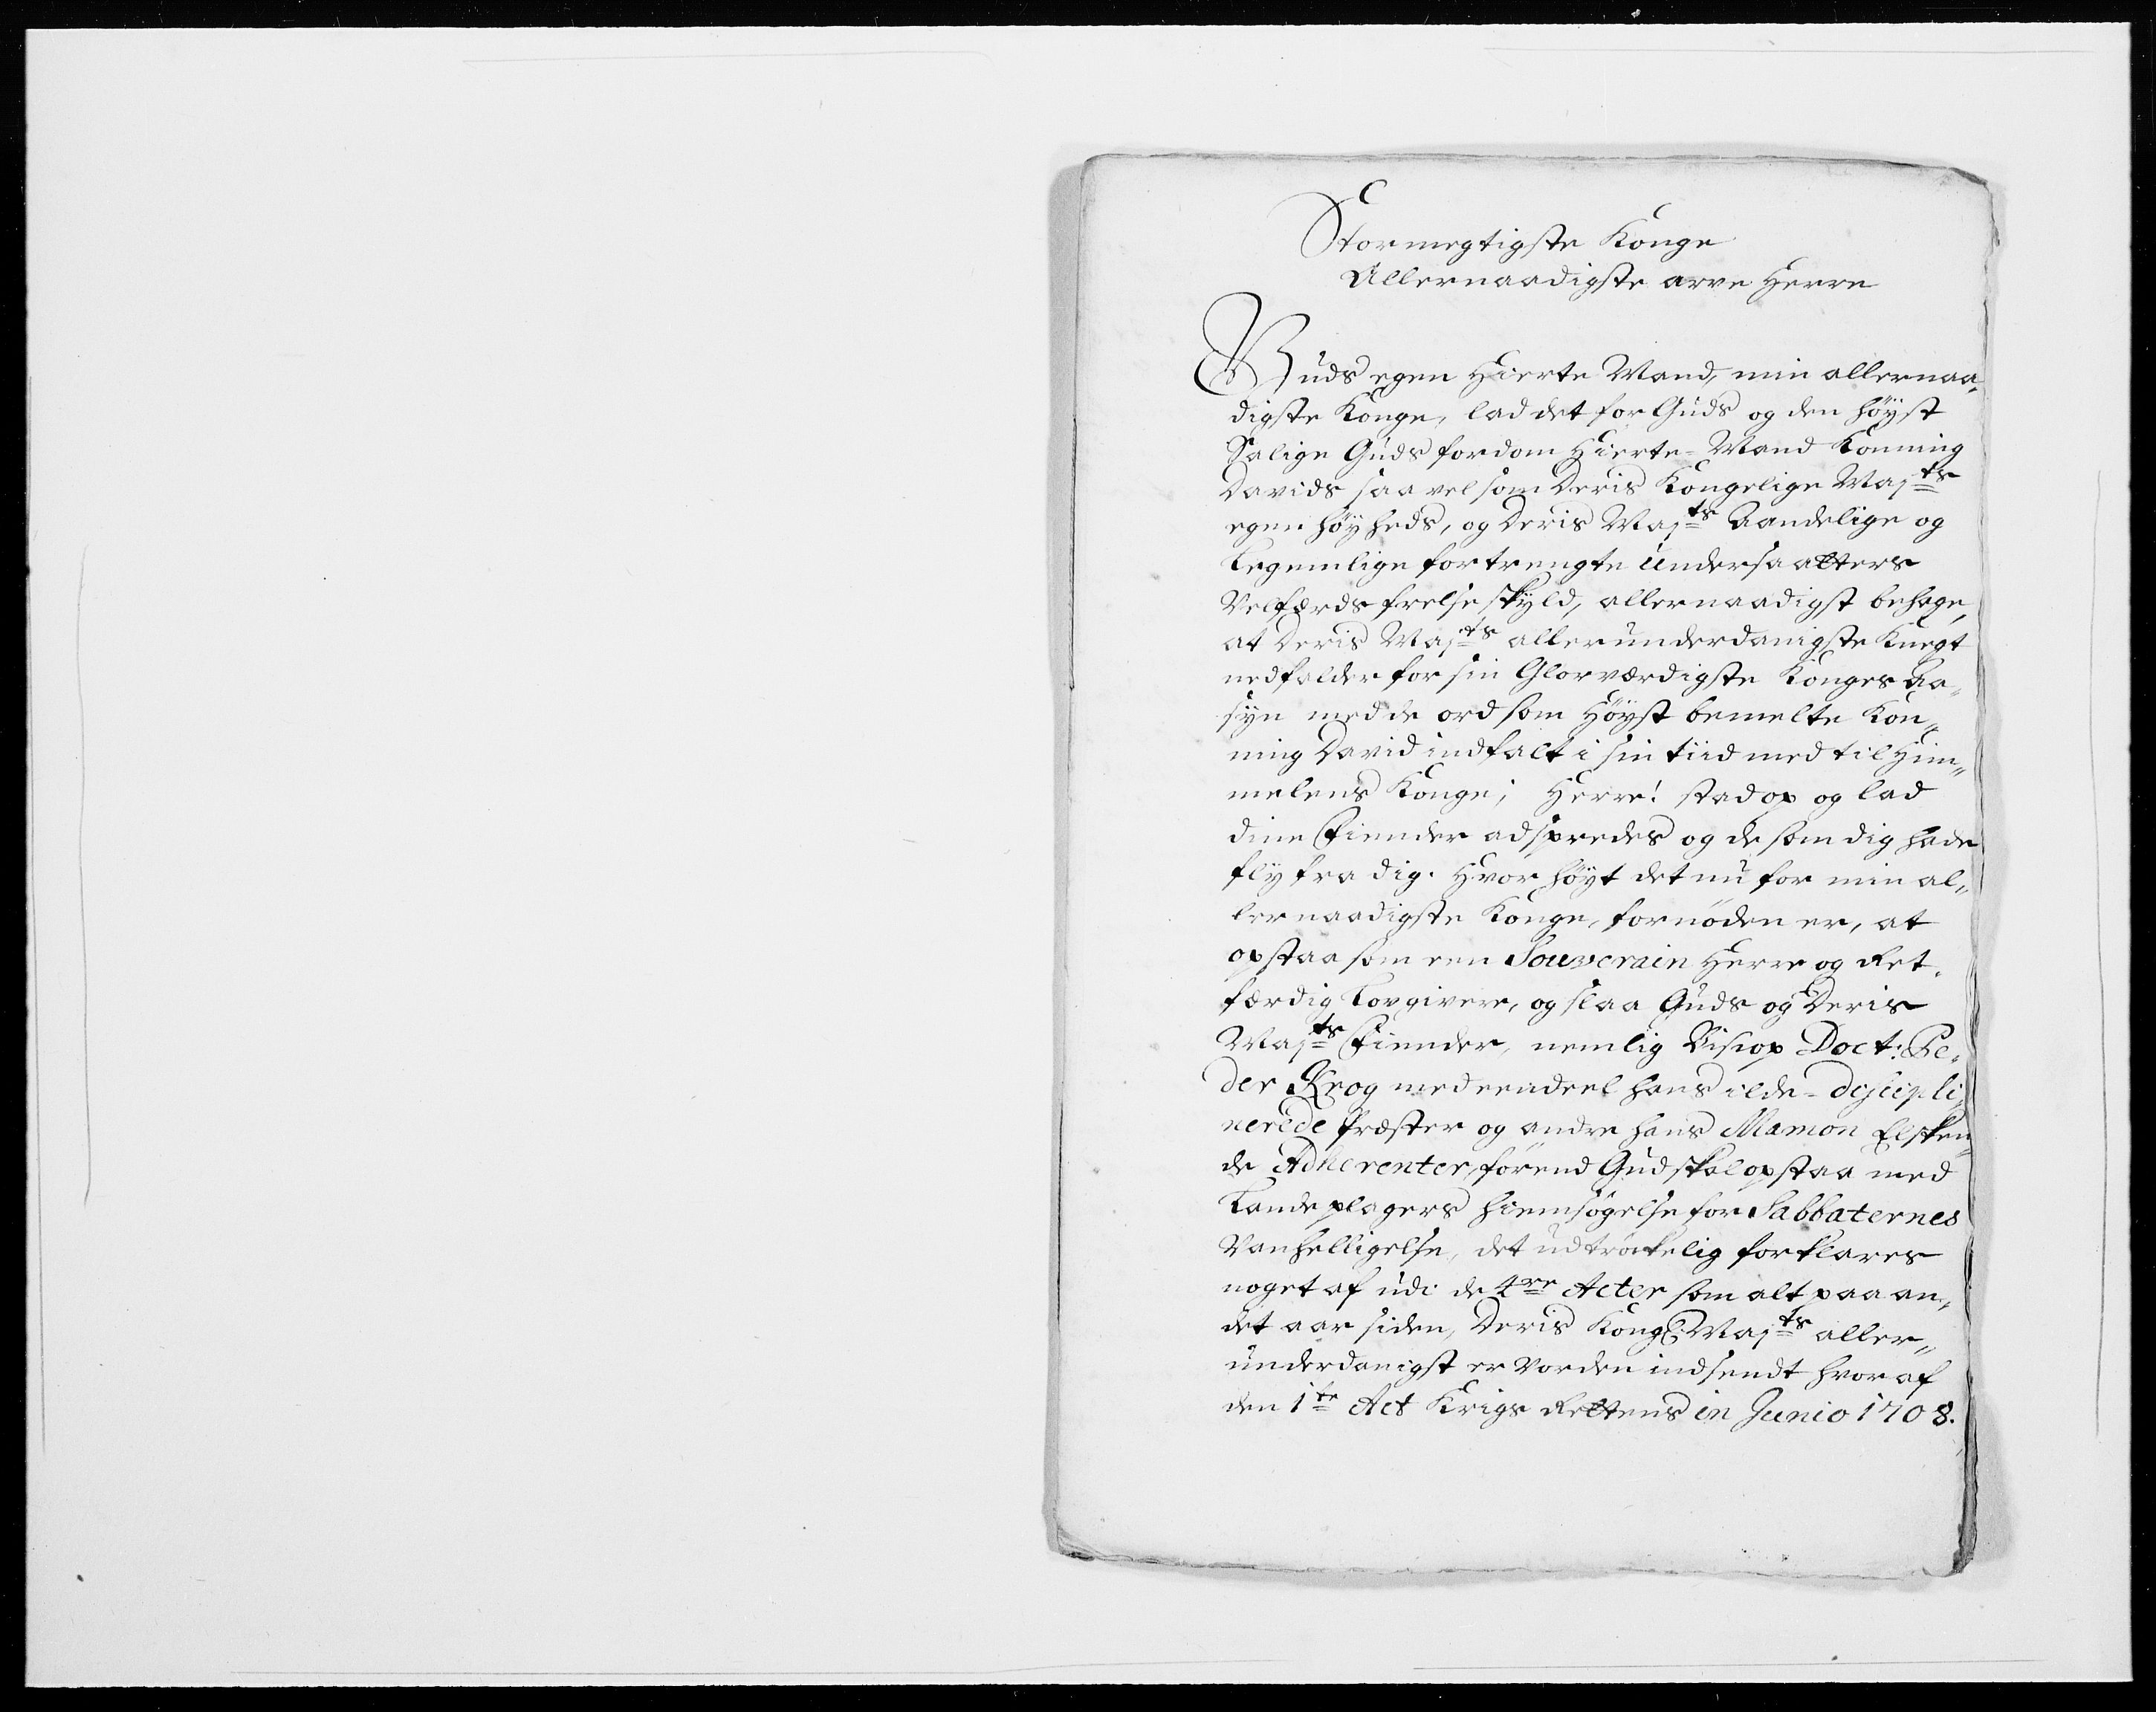 Stormegtigste Konge
Allernaadigste arve Herre
Guds egen Hierte Mand, min allernaa„
digste Konge, lad det for Guds og den høyst
Salige Guds fordom Hierte-Mand Konning
Davids saa vel som Deris Kongelige Majts
egen høyheds, og Deris Majts Aandelige og
Legemlige fortrengte Undersaatters
Velfærds frelse skyld, allernaadigst behage,
at Deris Majts allerunderdanigste Knegt
nedfalder for sin Glorværdigste Konges Aa„
syn med de ord som Høyst bemelte Kon„
ning David indfalt i sin tiid med til Him„
melens Konge; Herre! stad op og lad
dine Fiender adspredes og de som dig hade
fly fra dig. Hvor høyt det nu for min al„
lernaadigste Konge, fornøden er, at
opstaa som een Souverain Herre og Ret„
færdig Lovgivere, og slaa Guds og Deris
Majts Fiender, nemlig Biscop Doct: Pe„
der Krog med eendeel hans ilde-discipli„
nerede Præster og andre hans Mamon Elsken„
de Adherenter, førend Gud skal opstaa med
Lande plagers hiemsøgelse for Sabbaternes
Vanhelligelse, det udtrøckelig forklares
noget af udi de 4re Acter som alt paa an„
det aar siden, Deris Kongl: Majts aller„
underdanigst er vorden indsendt hvoraf
den 1te Act Krigs Rettens in Junio 1708.